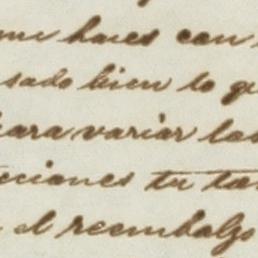 me haces con
sado bien lo q
para variar los
cciones tu ta
el reembalgo